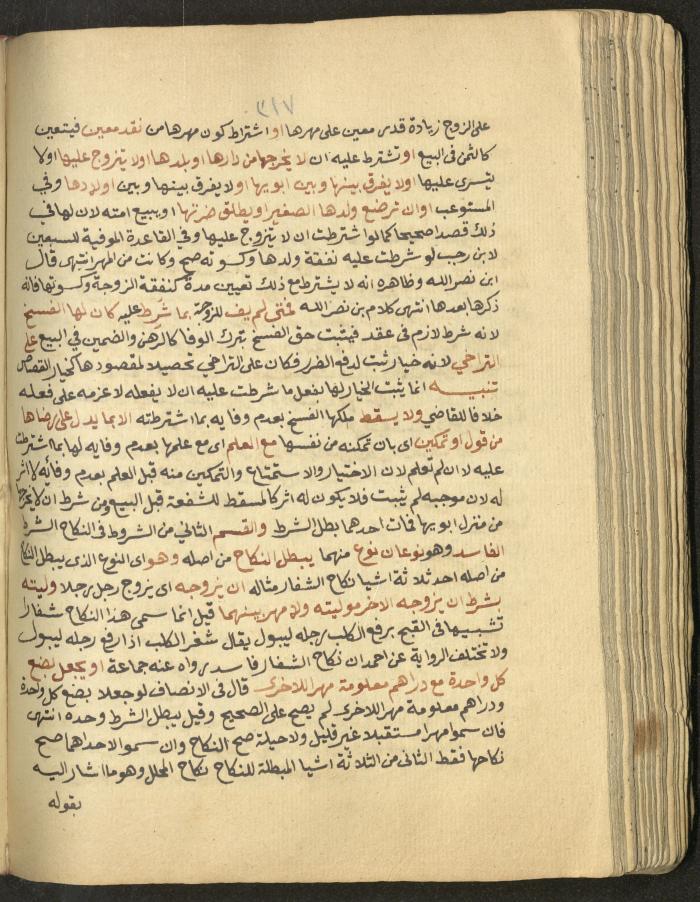 ٣١٧
على الزوج زيادة قدر معين على مهرها او اشتراط كون مهرها من نقد معين فيتعين
كالثمن فى البيع او تشترط عليه ان لا يخرجها من دارها او بلدها او لا يتزوج عليها او لا
يتسرى عليها او لا يفرق بينها وبين ابويها او لا يفرق بينها وبين اولادها وفي
المستوعب او ان ترضع ولدها الصغير او يطلق ضرتها او يبيع امته لان لها في
ذلك قصدا صحيحا كما لو اشترطت ان لا يتزوج عليها وفي القاعدة الموفية للسبعين
لابن رجب لو شرطت عليه نفقة ولدها وكسوته صح وكانت من المهر انتهى قال
ابن نصر الله وظاهره انه لا يشترط مع ذلك تعيين مدة كنفقة الزوجة وكسوتها فانه
ذكرها بعدها انتهى كلام بن نصر الله فمتى لم يف للزوجة بما شرط عليه كان لها الفسخ
لانه شرط لازم فى عقد فيثبت حق الفسخ بترك الوفا كالرهن والضمين في البيع على
التراخي لانه خيار ثبت لدفع الضرر فكان على التراخي تحصيلا لمقصودها كخيار القصاص
تنبيه انما يثبت الخيار لها بفعل ما شرطت عليه ان لا يفعله لا عزمه على فعله
خلافا للقاضي ولا يسقط ملكها الفسخ بعدم وفايه بما اشترطته الا بما يدل على رضاها
من قول او تمكين اى بان تمكنه من نفسها مع العلم اى مع علمها بعدم وفايه لها بما اشترطت
عليه لا ان لم تعلم لان الاختيار والاستمتاع والتمكين منه قبل العلم بعدم وفائه لا اثر
له لان موجبه لم يثبت فلا يكون له اثر كالمسقط للشفعة قبل البيع ومن شرط ان لا يخرجها
من منزل ابويها فمات احدهما بطل الشرط والقسم الثاني من الشروط فى النكاح الشرط
الفاسد وهو نوعان نوع منهما يبطل النكاح من اصله وهو اى النوع الذى يبطل النكاح
من اصله احد ثلاثة اشيا نكاح الشغار مثاله ان يزوجه اى يزوج رجل رجلا وليته
بشرط ان يزوجه الاخر موليته ولا مهر بينهما قيل انما سمى هذا النكاح شغارا
تشبيها فى القبح برفع الكلب رجله ليبول يقال شغر الكلب اذا رفع رجله ليبول
ولا تختلف الرواية عن احمد ان نكاح الشغار فاسد رواه عنه جماعة او يجعل بضع
كل واحدة مع دراهم معلومة مهر اللاخرى قال في الانصاف لو جعلا بضع كل واحدة
ودراهم معلومة مهر اللاخرى لم يصح على الصحيح وقيل يبطل الشرط وحده انتهى
فان سموا مهرا مستقبلا غير قليل ولا حيلة صح النكاح وان سموا لاحداهما صح
نكاحها فقط الثانى من الثلاثة اشيا المبطلة للنكاح نكاح المحلل وهو ما اشار اليه
بقوله